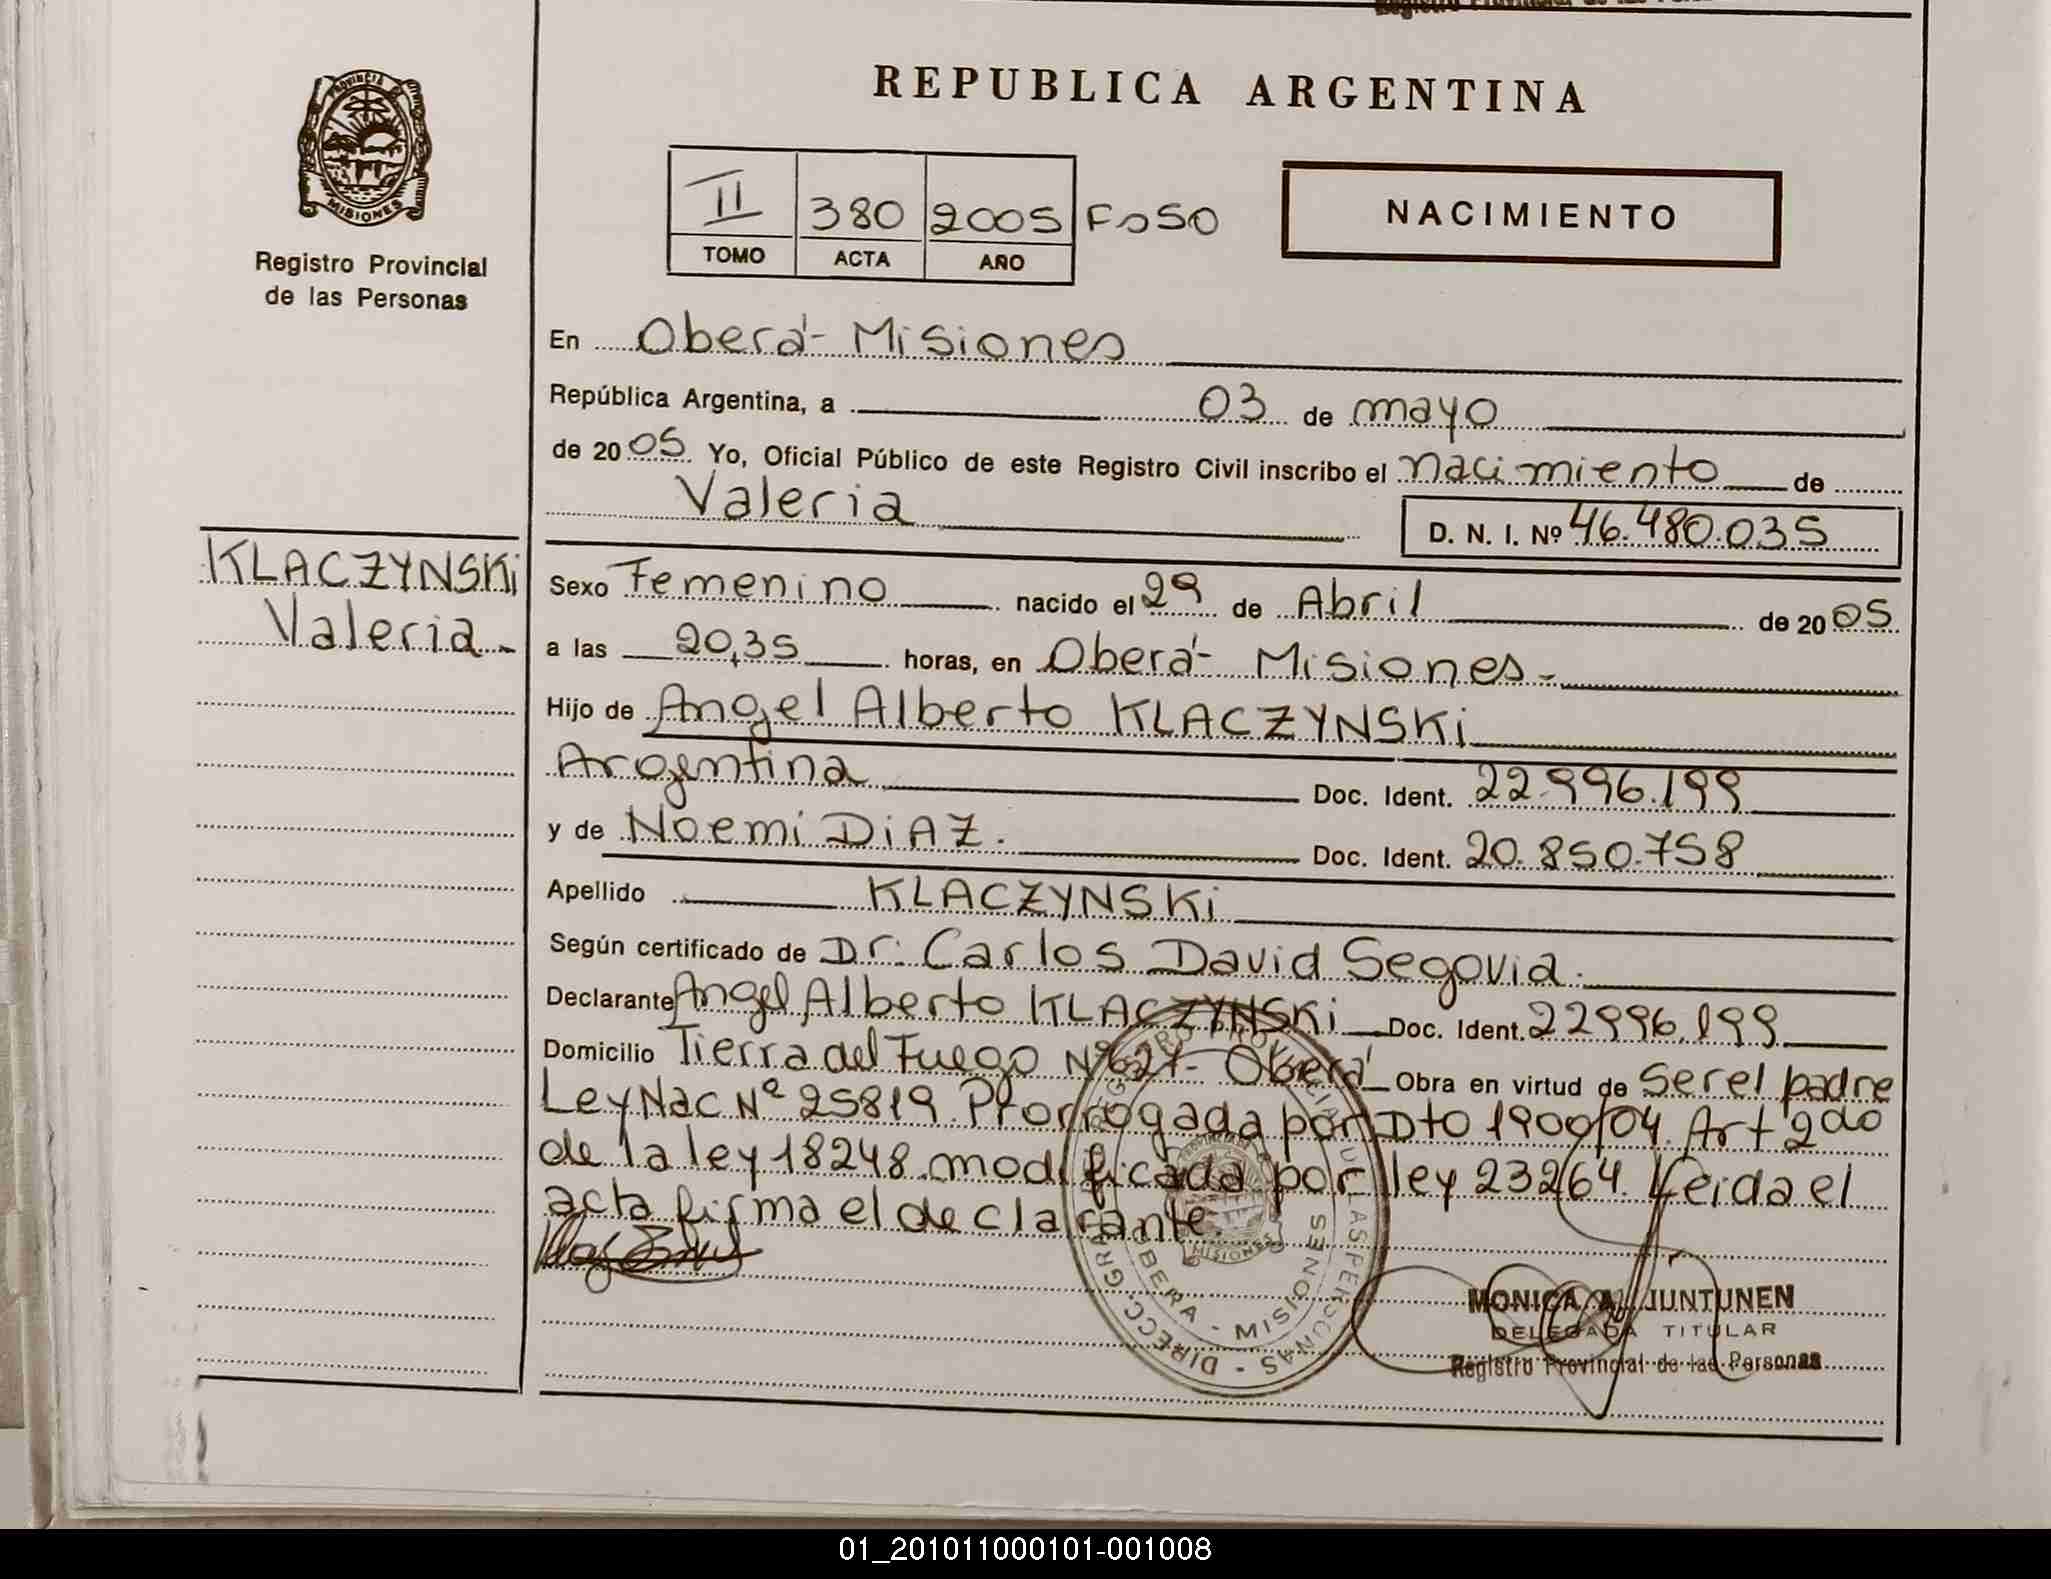 REPUBLICA ARGENTINA
PROVINCIA DE
MISIONES
Registro Provincial
de las Personas
II 380 2005 Fo50
TOMO ACTA AÑO
NACIMIENTO
En Oberá - Misiones
República Argentina, a 03 de mayo
de 2005 Yo, Oficial Público de este Registro Civil inscribo el nacimiento de
Valeria
D. N. I. Nº 46.480.035
KLACZYNSKi
Valeria-
Sexo Femenino nacido el 29 de Abril de 2005
a las 20,35 horas, en Oberá - Misiones-
Hijo de Angel Alberto KLACZYNSKi
Argentina Doc. Ident. 22.996.199
y de Noemi DiAZ. Doc. Ident. 20.850.758
Apellido KLACZYNSKi
Según certificado de Dr. Carlos David Segovia.
Declarante Angel Alberto KLACZYNSKi Doc. Ident. 22996.199
Domicilio Tierra del Fuego Nº 627- Oberá Obra en virtud de ser el padre
Ley Nac Nº 25819 Prorrogada por Dto 1900/04 Art 2do
de la ley 18248 modificada por ley 23264. Leida el
acta firma el declarante.
OBERA - MISIONES
MISIONES
MONICA A. JUNTUNEN
DELEGADA TITULAR
Registro Provincial de las Personas
01_201011000101-001008